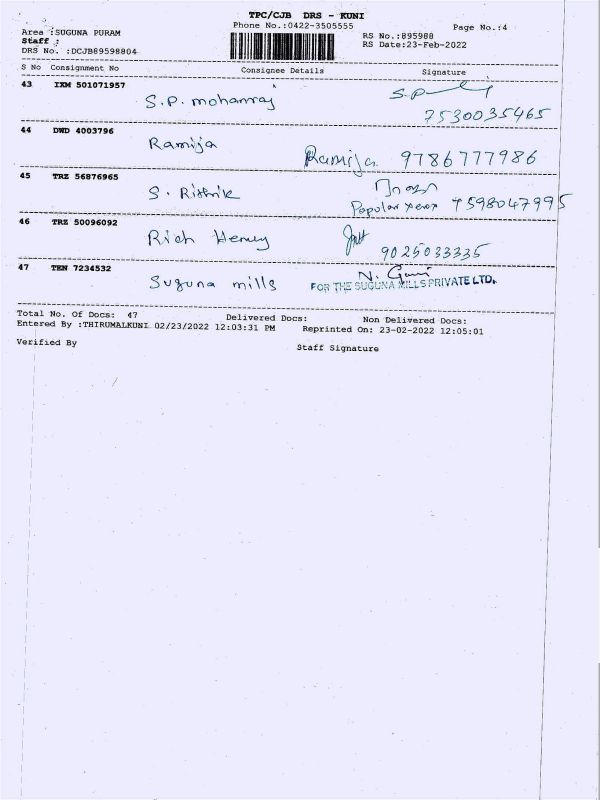 TPC/CJB DRS - KUNI
Phone No.:0422-3505555
Page No.:4
Area :SUGUNA PURAM
Staff :
DRS No. :DCJB89598804
RS No.:895988
RS Date:23-Feb-2022
S No Consignment No Consignee Details Signature
43 IXM 501071957
S.P. mohanraj
S.P
7530035465
44 DWD 4003796
Ramija
Ramija 9786777986
45 TRZ 56876965
S. Rithik
Popular xerox 7598047995
46 TRZ 50096092
Rich Henry
9025033335
47 TEN 7234532
Suguna mills
N. Guni
FOR THE SUGUNA MILLS PRIVATE LTD.
Total No. Of Docs: 47 Delivered Docs: Non Delivered Docs:
Entered By :THIRUMALKUNI 02/23/2022 12:03:31 PM Reprinted On: 23-02-2022 12:05:01
Verified By
Staff Signature